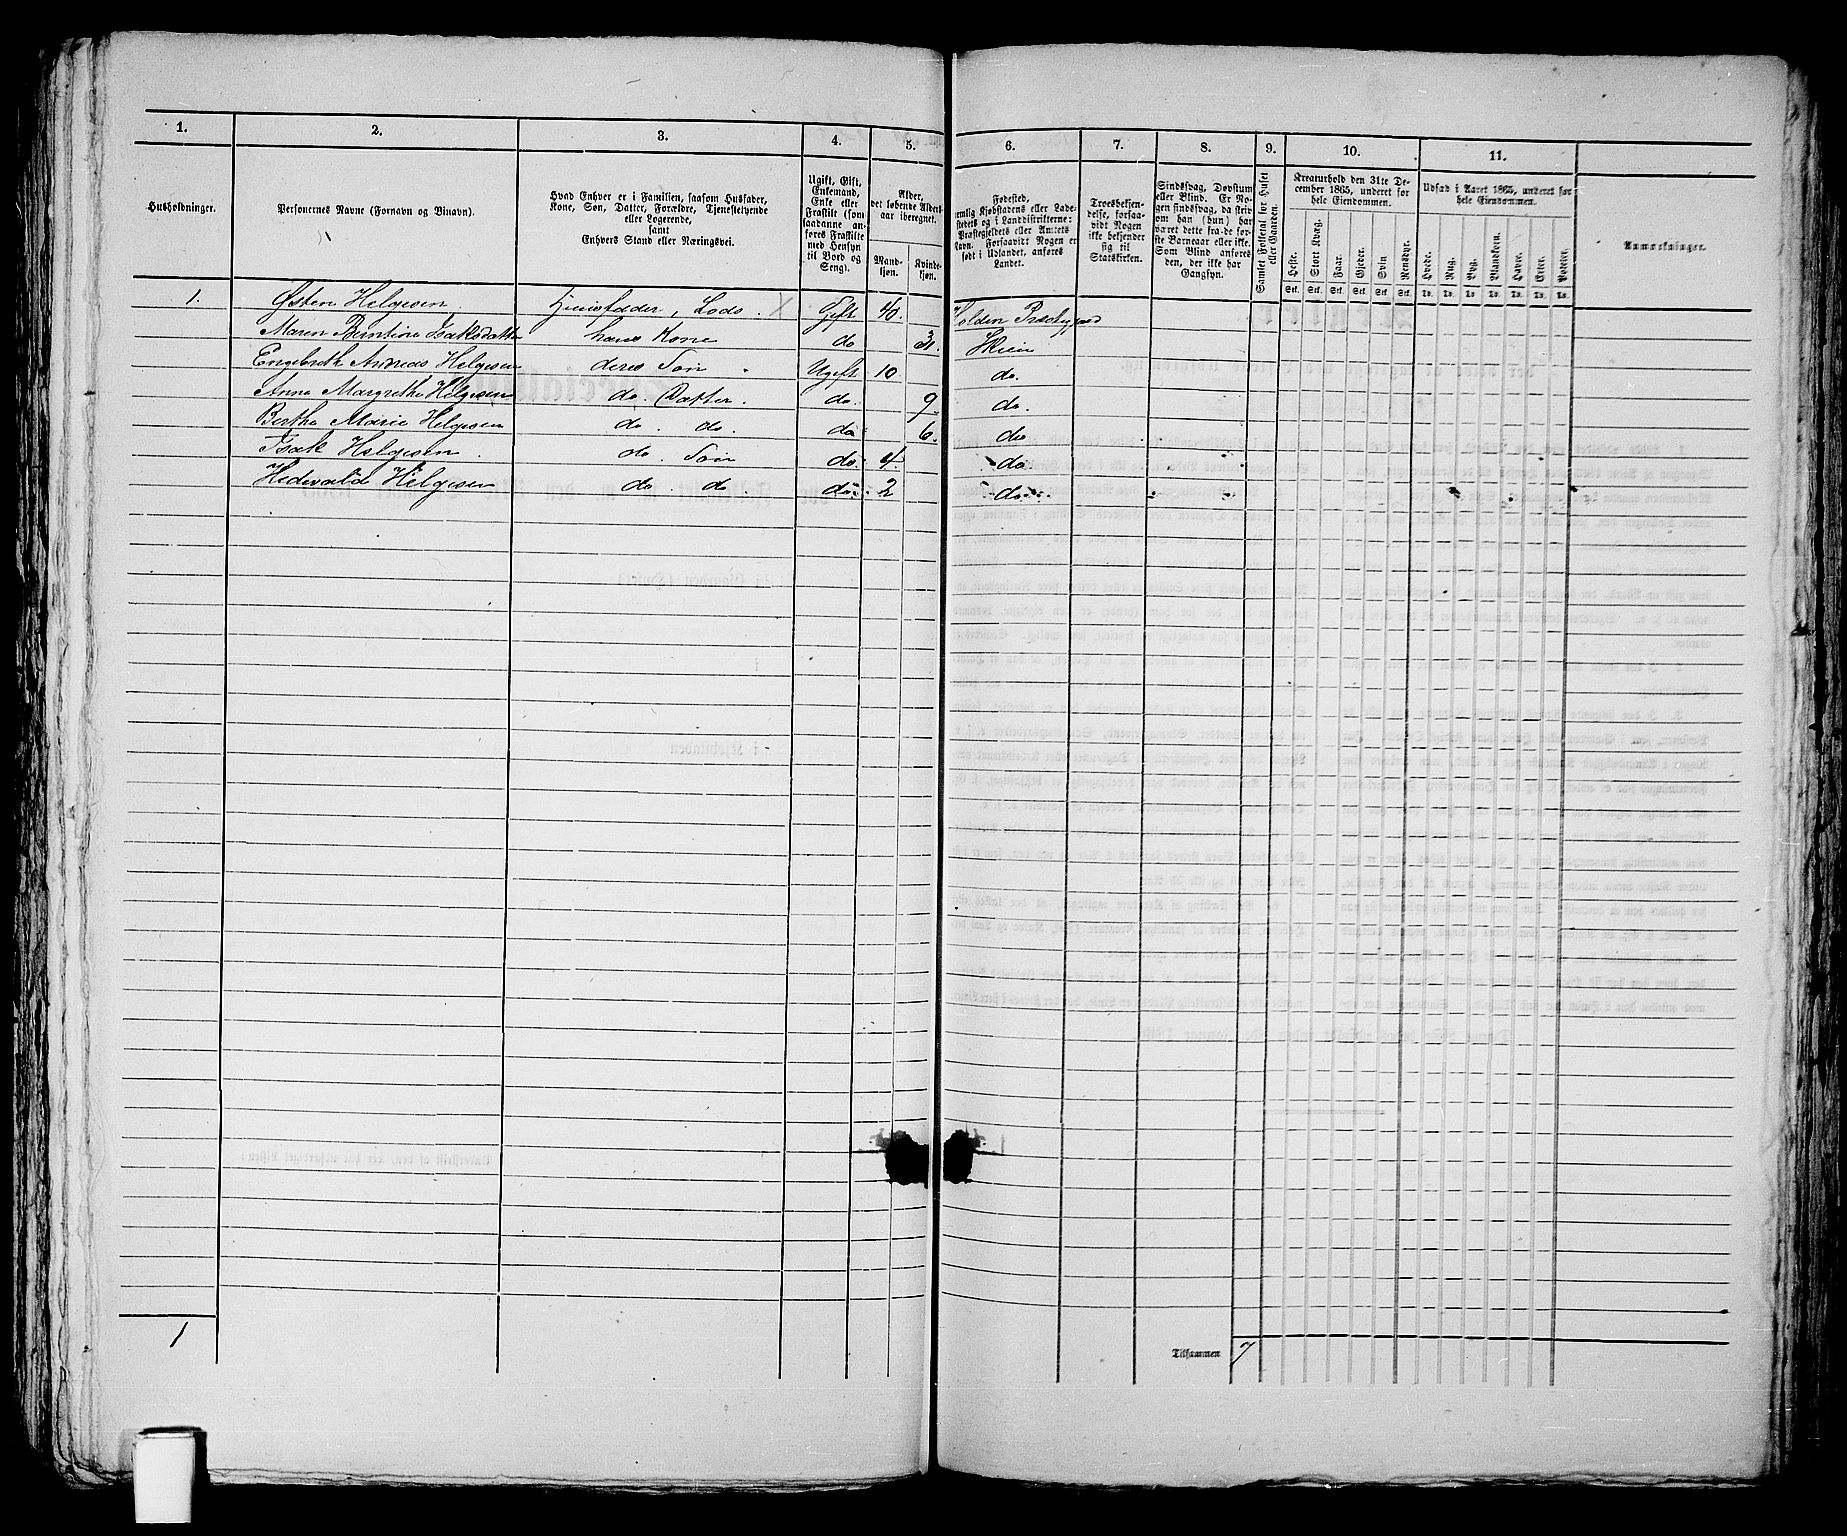 1. 2. 3. 4. 5. 6. 7. 8. 9. 10. 11.
Husholdninger.
Personernes Navne (Fornavn og Binavn).
Hvad Enhver er i Familien, saasom Husfader,
Kone, Søn, Datter, Forældre, Tjenestetyende
eller Logerende,
samt
Enhvers Stand eller Næringsvei.
Ugift, Gift,
Enkemand,
Enke eller
Fraskilt (som
saadanne an-
føres Fraskilte
med Hensyn
til Bord og
Seng).
Alder,
det løbende Alders-
aar iberegnet.
Mand-
kjøn.
Kvinde-
kjøn.
Fødested,
nemlig Kjøbstadens eller Lade-
stedets og i Landdistrikterne:
Præstegjeldets eller Amtets
Navn. Forsaavidt Nogen er
født i Udlandet, anføres
Landet.
Troesbekjen-
delse, forsaa-
vidt Nogen
ikke bekjender
sig til
Statskirken.
Sindssvag, Døvstum
eller Blind. Er No-
gen sindssvag, da skriv
om han (hun) har
været dette fra de før-
ste Barneaar eller ikke.
Som Blind anføres
den, der ikke har
Gangsyn.
Samlet Folketal for Huset
eller Gaarden.
Kreaturhold den 31te De-
cember 1865, underet for
hele Eiendommen.
Heste. Stort Kvæg. Faar. Gjeder. Svin Rensdyr.
Stk. Stk. Stk. Stk. Stk. Stk.
Udsæd i Aaret 1865, underet for
hele Eiendommen.
Hvede. Rug. Byg. Blandkorn. Havre. Erter. Poteter.
Td. Td. Td. Td. Td. Td. Td.
Anmærkninger.
1. Østen Helgesen Huusfader, Lods. X Gift 40. Holden Præstegjeld
Maren Berntine Isaksdatter hans Kone do 31. Skien
Engebreth Andreas Helgesen deres Søn Ugift 10 do.
Anne Margrethe Helgesen do. Datter. do. 9. do.
Berthe Marie Helgesen do. do. do 6. do
Isak Helgesen do. Søn do. 4. do
Hedevald Helgesen do. do do 2 do
1 Tilsammen 7